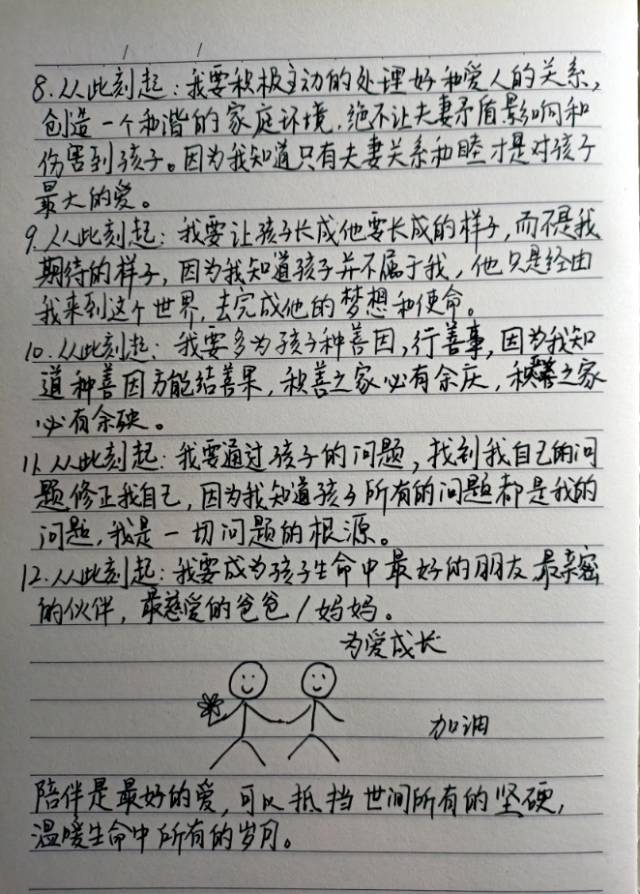 8.从此刻起:我要积极主动的处理好和爱人的关系,
创造一个和谐的家庭环境,绝不让夫妻矛盾影响和
伤害到孩子。因为我知道只有夫妻关系和睦才是对孩子
最大的爱。
9.从此刻起:我要让孩子长成他要长成的样子,而不是我
期待的样子,因为我知道孩子并不属于我,他只是经由
我来到这个世界,去完成他的梦想和使命。
10.从此刻起:我要多为孩子种善因,行善事,因为我知
道种善因方能结善果,积善之家必有余庆,积之家
必有余殃。
11.从此刻起:我要通过孩子的问题,找到我自己的问
题修正我自己,因为我知道孩子所有的问题都是我的
问题,我是一切问题的根源。
12.从此刻起:我要成为孩子生命中最好的朋友,最亲密
的伙伴,最慈爱的爸爸/妈妈。
为爱成长
加油
陪伴是最好的爱,可以抵挡世间所有的坚硬,
温暖生命中所有的岁月。